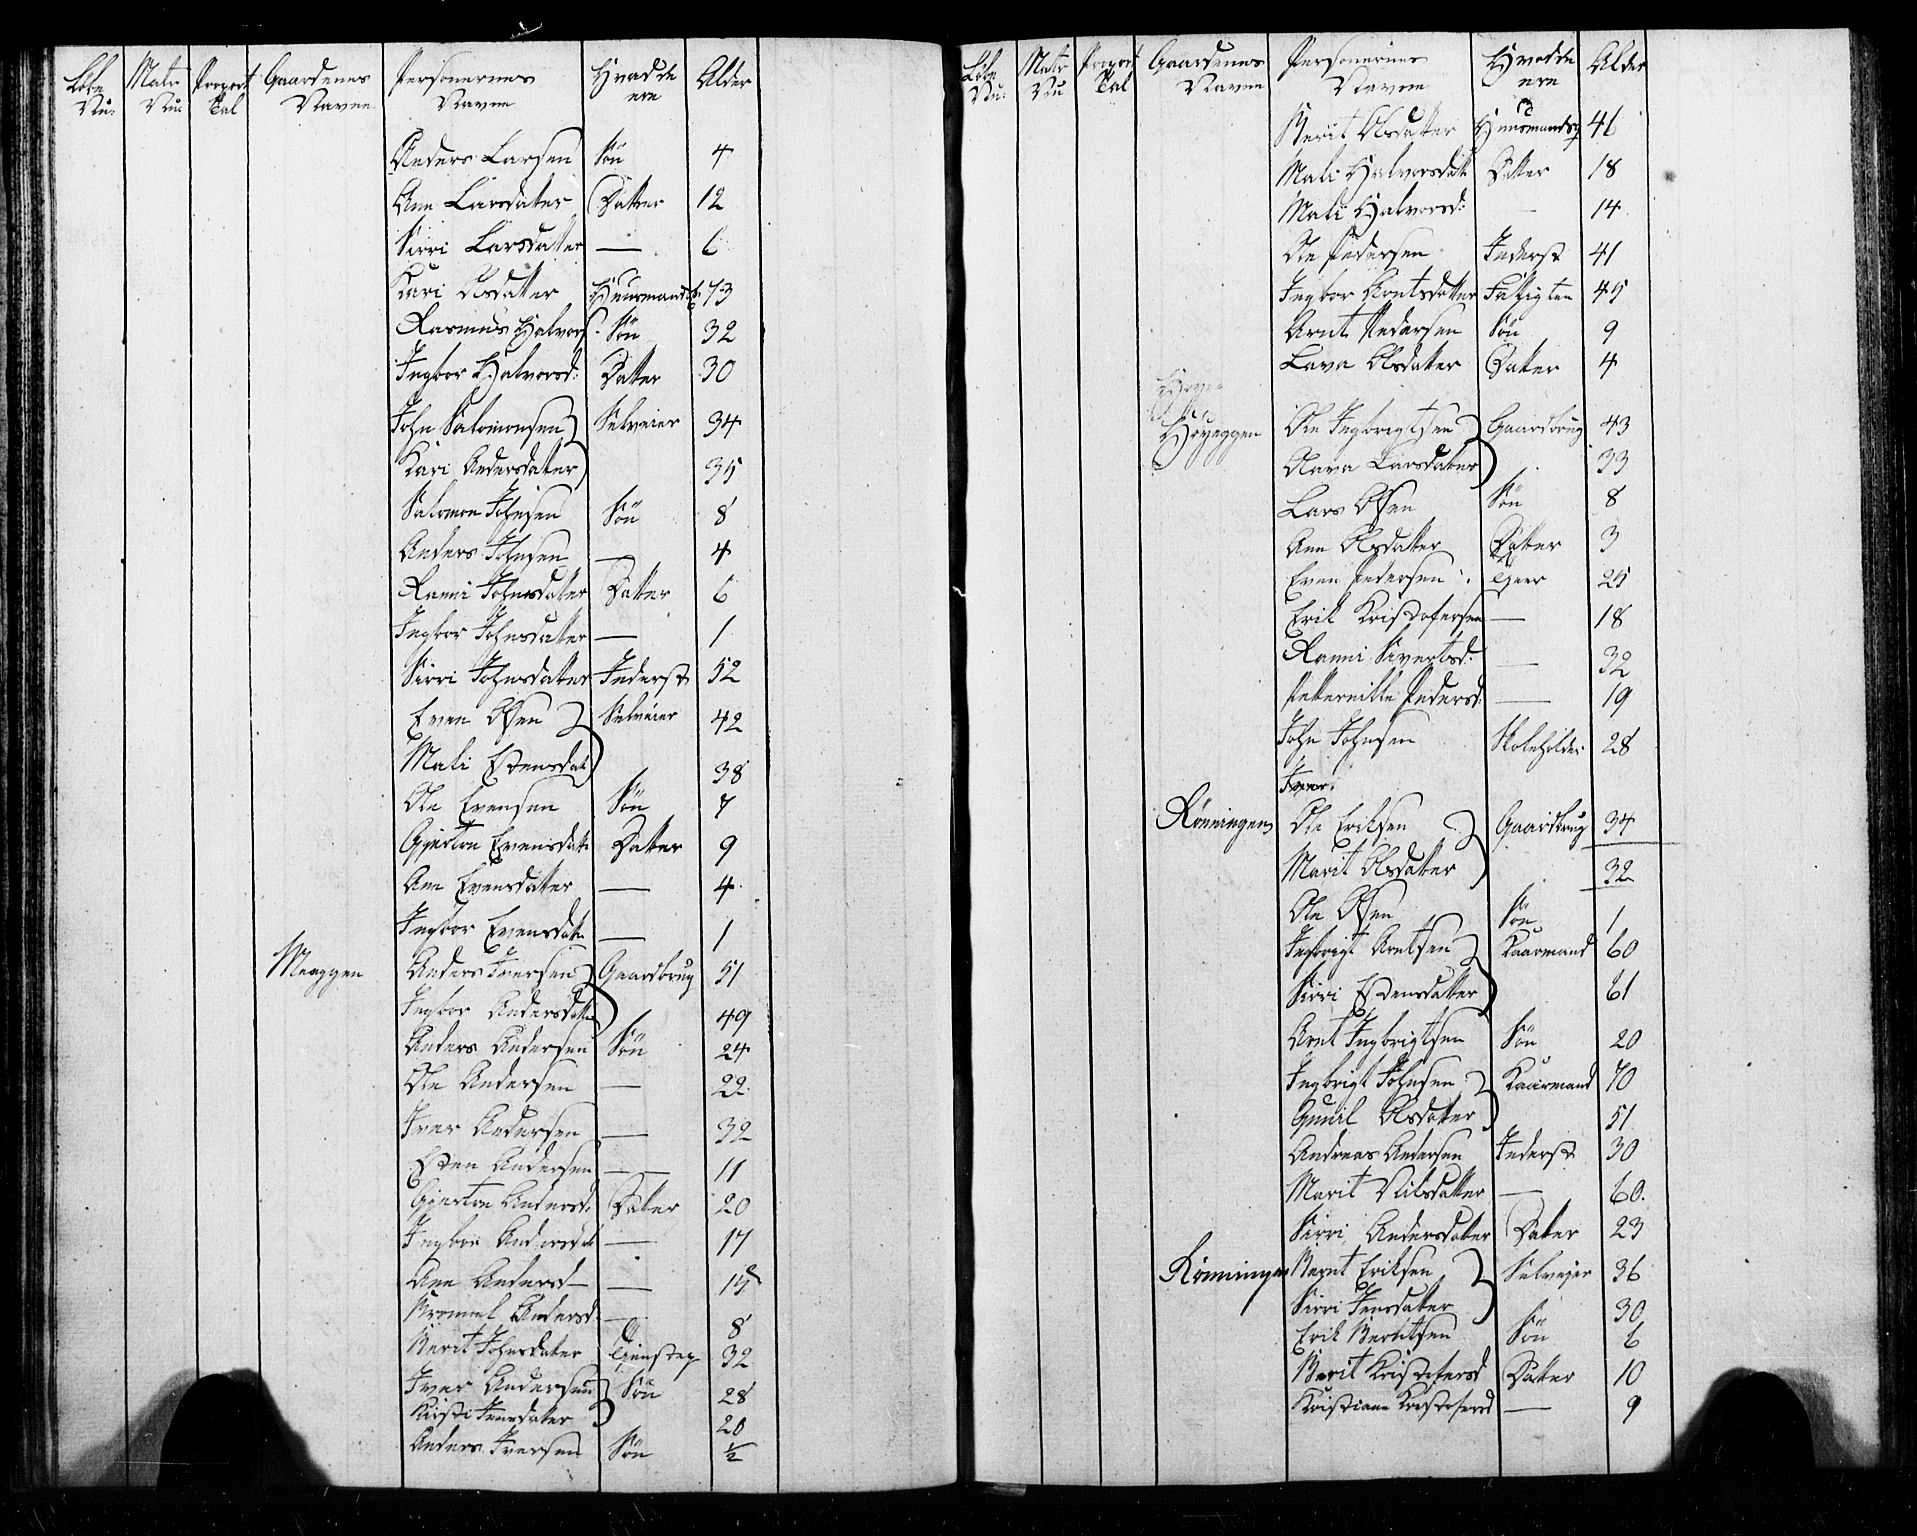 Løbe Matr Proport Gaardenes Personernes Hvad de Alder
Nu: Nu: Tal Navne Navne ere
Anders Larsen Søn 4
Ane Larsdatter Datter 12
Sirri Larsdatter — 6
Kari Olsdatter Huusmands 73
Rasmus Halvors: Søn 32
Ingbor Halvorsd: Datter 30
John Salomonsen Selveier 34
Kari Andersdatter 35
Salomon Johnsen Søn 8
Anders Johnsen — 4
Ranni Johnsdatter Datter 6
Ingbor Johnsdatter — 1
Sirri Johnsdatter Inderst 52
Even Olsen Selveier 42
Mali Estensdat 38
Ole Evensen Søn 7
Gjertru Evensdatt Datter 9
Ane Evensdatter — 4
Ingbor Evensdatt — 1
Meeggen Anders Iversen Gaardbrug 51
Ingbor Andersdatt 49
Anders Andersen Søn 24
Ole Andersen — 22
Iver Andersen — 32
Esten Andersen — 11
Gjertru Andersd: Datter 20
Ingbor Andersdat — 17
Ane Andersd — — 15
Andersd: — 8
Berit Johnsdatter Tjenstep 32
Iver Andersen Søn 28
Kirsti Jensdatter 20
Anders Iversen Søn ½
Løbe Matr Proport Gaardenes Personernes Hvad de Alder
Nu: Nu Tal Navne Navne ere
Berit Olsdatter Huusmands 46
Mali Halvorsdatt Datter 18
Mali Halvorsd: — 14
Ole Pedersen Inderst 41
Ingbor Arntsdatter Fattigten 45
Arnt Pedersen Søn 9
Lava Olsdatter Datter 4
Høyeggen Ole Ingbrigtsen Gaardbrug 43
Olava Larsdatter 33
Lars Olsen Søn 8
Ane Olsdatter Datter 3
Even Pedersen Tjener 25
Erik Kristofersen — 18
Ranni Sivertsd: — 32
Petternille Pedersd: — 19
John Johnsen Skoleholder 28
Iver
Rønningen Ole Eriksen Gaardbrug 34
Marit Olsdatter 32
Ole Olsen Søn 1
Ingbrigt Arntsen Kaarmand 60
Sirri Estensdatter 61
Arnt Ingbrigtsen Søn 20
Ingbrigt Johnsen Kaarmand 70
Gunil Olsdatter 51
Andreas Andersen Inderst 30
Marit Nilsdatter — 60.
Sirri Andersdatter Datter 23
Rønningen Bernt Eriksen Selvejer 36
Sirri Jensdatter 30
Erik Berntsen Søn 6
Berit Kristofersd Datter 10
Kristiane Kristofersd — 9